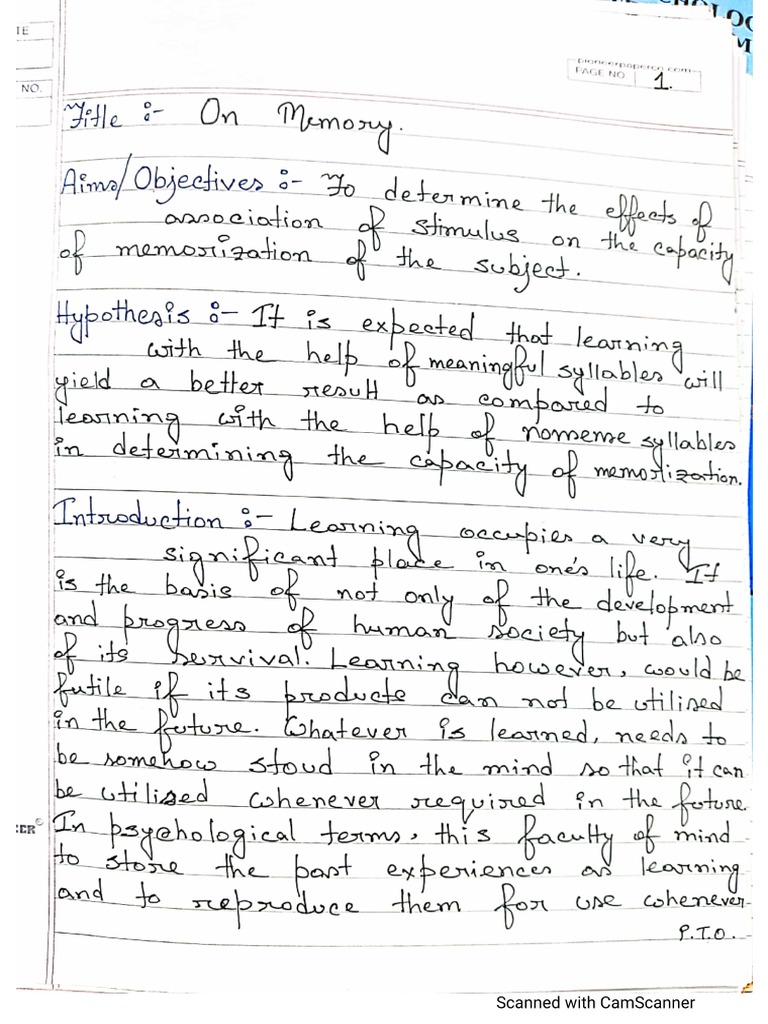 LOG
M
TE
NO.
pioneerpaperco.com
PAGE NO 1.
Title :- On Memory.
Aims/Objectives :- To determine the effects of
association of stimulus on the capacity
of memorization of the subject.
Hypothesis :- It is expected that learning
with the help of meaningful syllables will
yield a better result as compared to
learning with the help of nonsense syllables
in determining the capacity of memorization.
Introduction :- Learning occupies a very
significant place in one's life. It
is the basis of not only of the development
and progress of human society but also
of its servival. Learning however, would be
futile if its products can not be utilised
in the future. Whatever is learned, needs to
be somehow stoud in the mind so that it can
be utilised whenever required in the future
In psychological terms, this faculty of mind
to store the past experiences as learning
and to reproduce them for use whenever
P.T.O.
ER©
Scanned with CamScanner